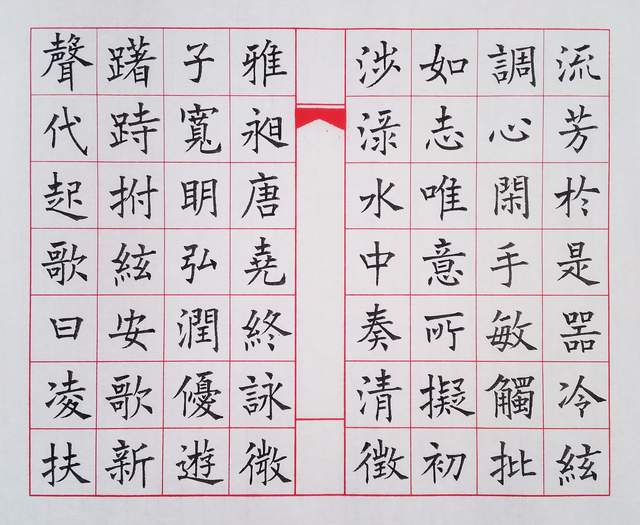 流芳於是噐冷絃
調心閑手敏觸批
如志唯意所擬初
涉淥水中奏清徵
雅昶唐堯終詠微
子寬明弘潤優遊
躇跱拊絃安歌新
聲代起歌曰凌扶